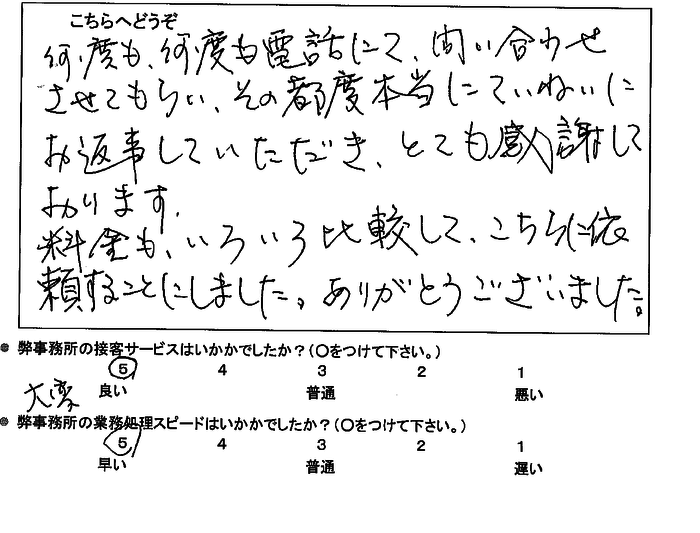 こちらへどうぞ
何度も、何度も電話にて、問い合わせ
させてもらい、その都度本当にていねいに
お返事していただき、とても感謝して
おります。
料金も、いろいろ比較して、こちらに依
頼することにしました。ありがとうございました。
● 弊事務所の接客サービスはいかがでしたか?(○をつけて下さい。)
5 4 3 2 1
大変 良い 普通 悪い
● 弊事務所の業務処理スピードはいかがでしたか?(○をつけて下さい。)
5 4 3 2 1
早い 普通 遅い